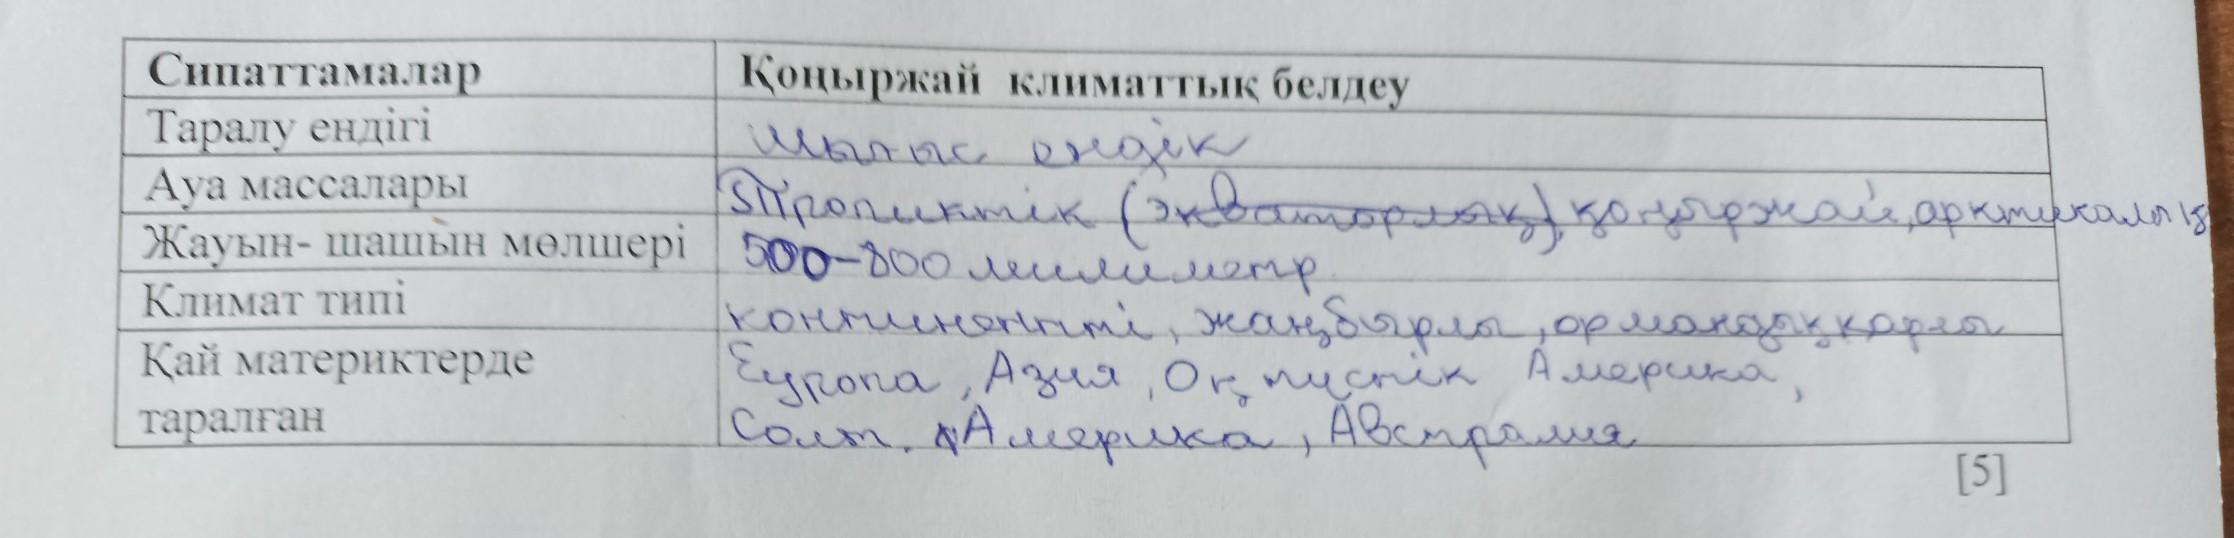 Сипаттамалар Қоңыржай климаттық белдеу
Таралу ендігі шығыс ендік
Ауа массалары Тропиктік (экваторлық), қоңыржай, арктикалық
Жауын- шашын мөлшері 500-800 милиметр
Климат типі континентті, жаңбырлы, қарлы
Қай материктерде Еуропа, Азия, Оңтүстік Америка,
таралған Солт. Америка, Австралия
[5]